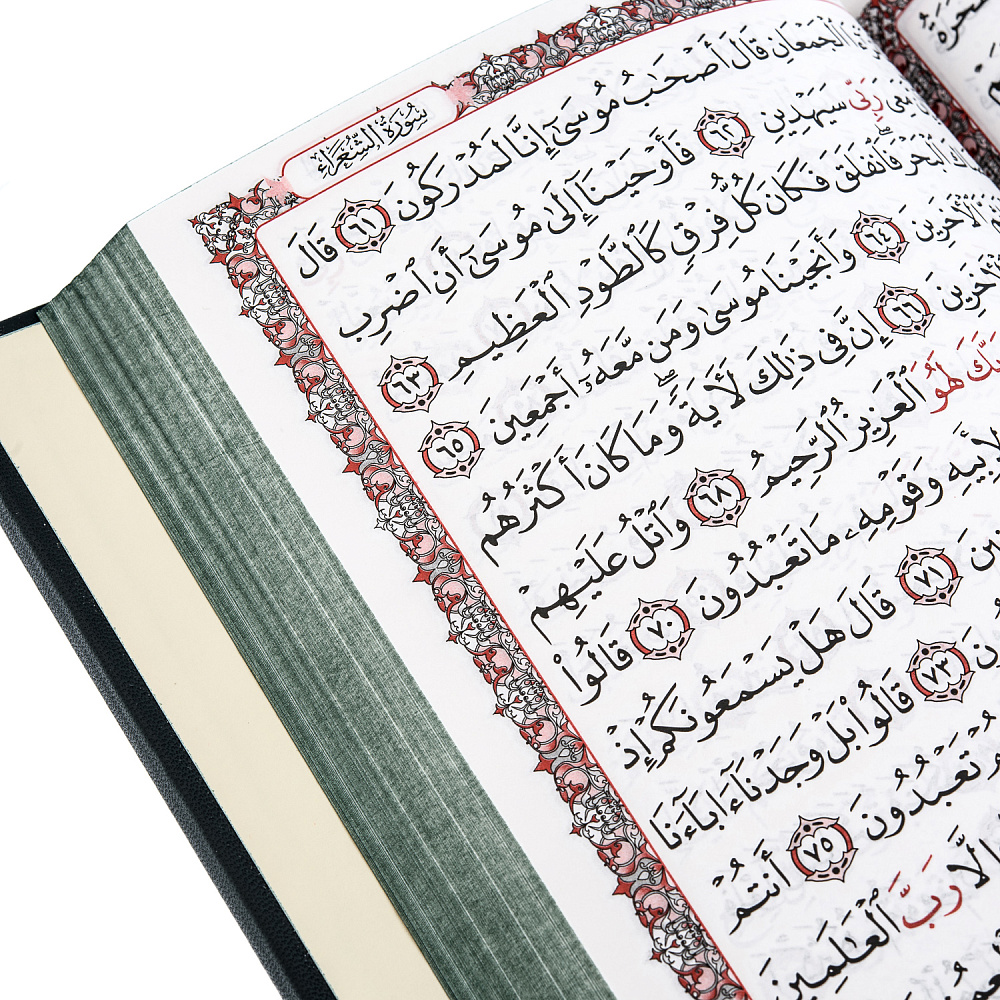 سُورَةُ الشُّعَرَاءِ
ٱلۡجَمۡعَانِ قَالَ أَصۡحَٰبُ مُوسَىٰٓ إِنَّا لَمُدۡرَكُونَ ٦١ قَالَ
مَعِىَ رَبِّى سَيَهۡدِينِ ٦٢ فَأَوۡحَيۡنَآ إِلَىٰ مُوسَىٰٓ أَنِ ٱضۡرِب
ٱلۡبَحۡرَۖ فَٱنفَلَقَ فَكَانَ كُلُّ فِرۡقٖ كَٱلطَّوۡدِ ٱلۡعَظِيمِ ٦٣
ٱلۡأٓخَرِينَ ٦٤ وَأَنجَيۡنَا مُوسَىٰ وَمَن مَّعَهُۥٓ أَجۡمَعِينَ ٦٥
ٱلۡأٓخَرِينَ ٦٦ إِنَّ فِى ذَٰلِكَ لَأٓيَةٗۖ وَمَا كَانَ أَكۡثَرُهُم
لَهُوَ ٱلۡعَزِيزُ ٱلرَّحِيمُ ٦٨ وَٱتۡلُ عَلَيۡهِمۡ
لِأَبِيهِ وَقَوۡمِهِۦ مَا تَعۡبُدُونَ ٧٠ قَالُواْ
٧١ قَالَ هَلۡ يَسۡمَعُونَكُمۡ إِذۡ
٧٣ قَالُواْ بَلۡ وَجَدۡنَآ ءَابَآءَنَا
تَعۡبُدُونَ ٧٥ أَنتُمۡ
إِلَّا رَبَّ ٱلۡعَٰلَمِينَ